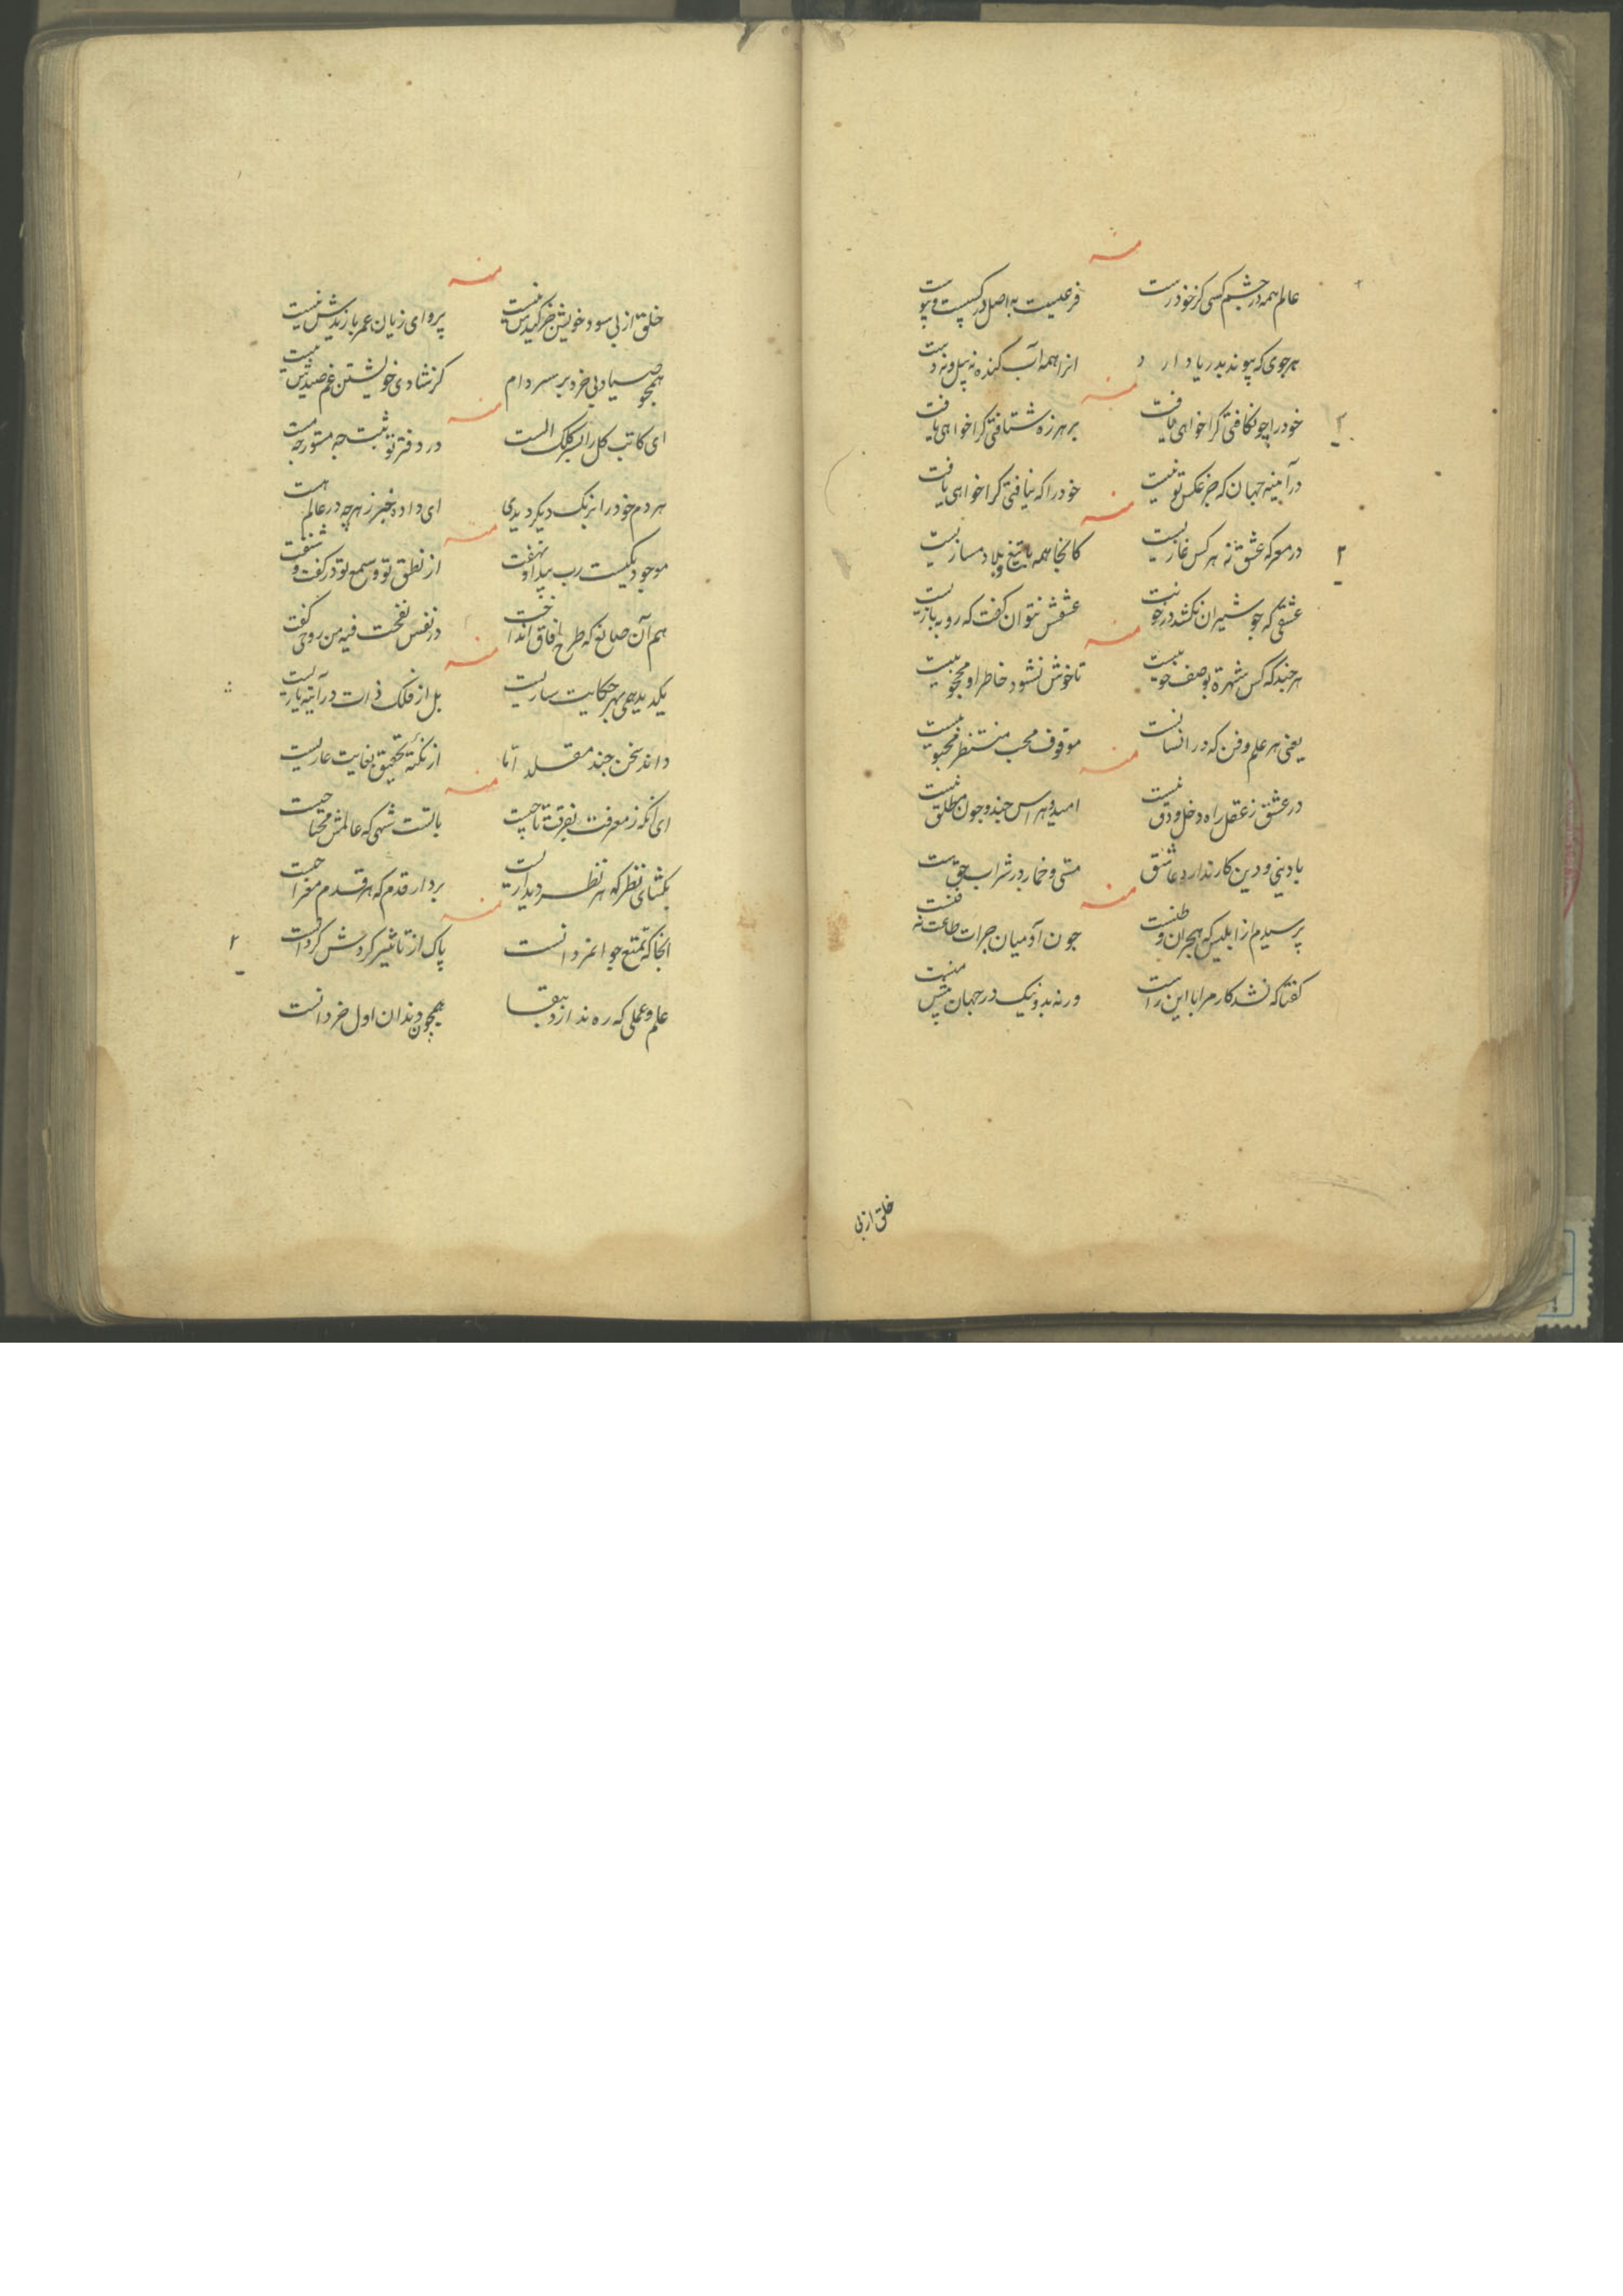 منه
عالم همه در چشم کسی کز خود رست فرعیست به اصل در
هر جوی که پیوند بدریا دارد انرا همه آب کنده نه پیل و نه
منه
خود را چو نکافتی کرا خواهی یافت بر هرزه شتافتی کرا خواهی یافت
در آیینه جهان که جز عکس تو نیست خود را که نیافتی کرا خواهی یافت
منه
در معرکه عشق نه هر کس غازیست کانجا همه با تیغ و بلا دمسازیست
عشقی که جو شیران نکشد در خونت عشقش نتوان کفت که روبه بازیست
منه
هر چند که کس شهره بوصف خوبیست تا خوش نشود خاطر او محجوبیست
یعنی هر علم و فن که در انسانست موقوف محب منتظر محبوبیست
منه
در عشق ز عقل راه دخل و دق نیست امید و هراس جند و جون مطلق نیست
با دینی و دین کار ندارد عاشق مستی و خمار در شراب حق نیست
منه
پرسیدم از ابلیس که هجران وطنست جون آدمیان جرات طاعت نه فنست
کفتا که نشد کار مرا با این راست ورنه بد و نیک در جهان پیش منست
خلق از پی
منه
خلق از پی سود خویش جز کیدش نیست پروای زیان عمر با زیدش نیست
همچو صیاد بی خرد بر سر دام کز شادی خویشتن غم صیدش نیست
منه
ای کاتب کل ز کلک الست در دفتر تو ثبت جه مستور جه مست
هر دم خود را برنک دیکر دیدی ای داده خبر ز هر چه در عالم هست
منه
موجود یکیست رب پیدا و نهفت از نطق تو و سمع تو در کفت و شنفت
هم آن صانع که طرح آفاق انداخت در نفس نفخت فیه من روحی کفت
منه
حکایت ساریست بل از فلک ذات در آیینه
داند سخن جند مقلد اما از نکتهٔ تحقیق بغایت عاریست
منه
ای آنکه ز معرفت بفرقت تاجیست با تست شهی که عالمش محتاجیست
بکشای نظر که هر نظر دیداریست بردار قدم که هر قدم معراجیست
منه
انجا که تمتع جوانمردانست پاک از تاثیر کردش کردانست
علم و عملی که ره ندارد ببقا همچون دندان اول خردانست